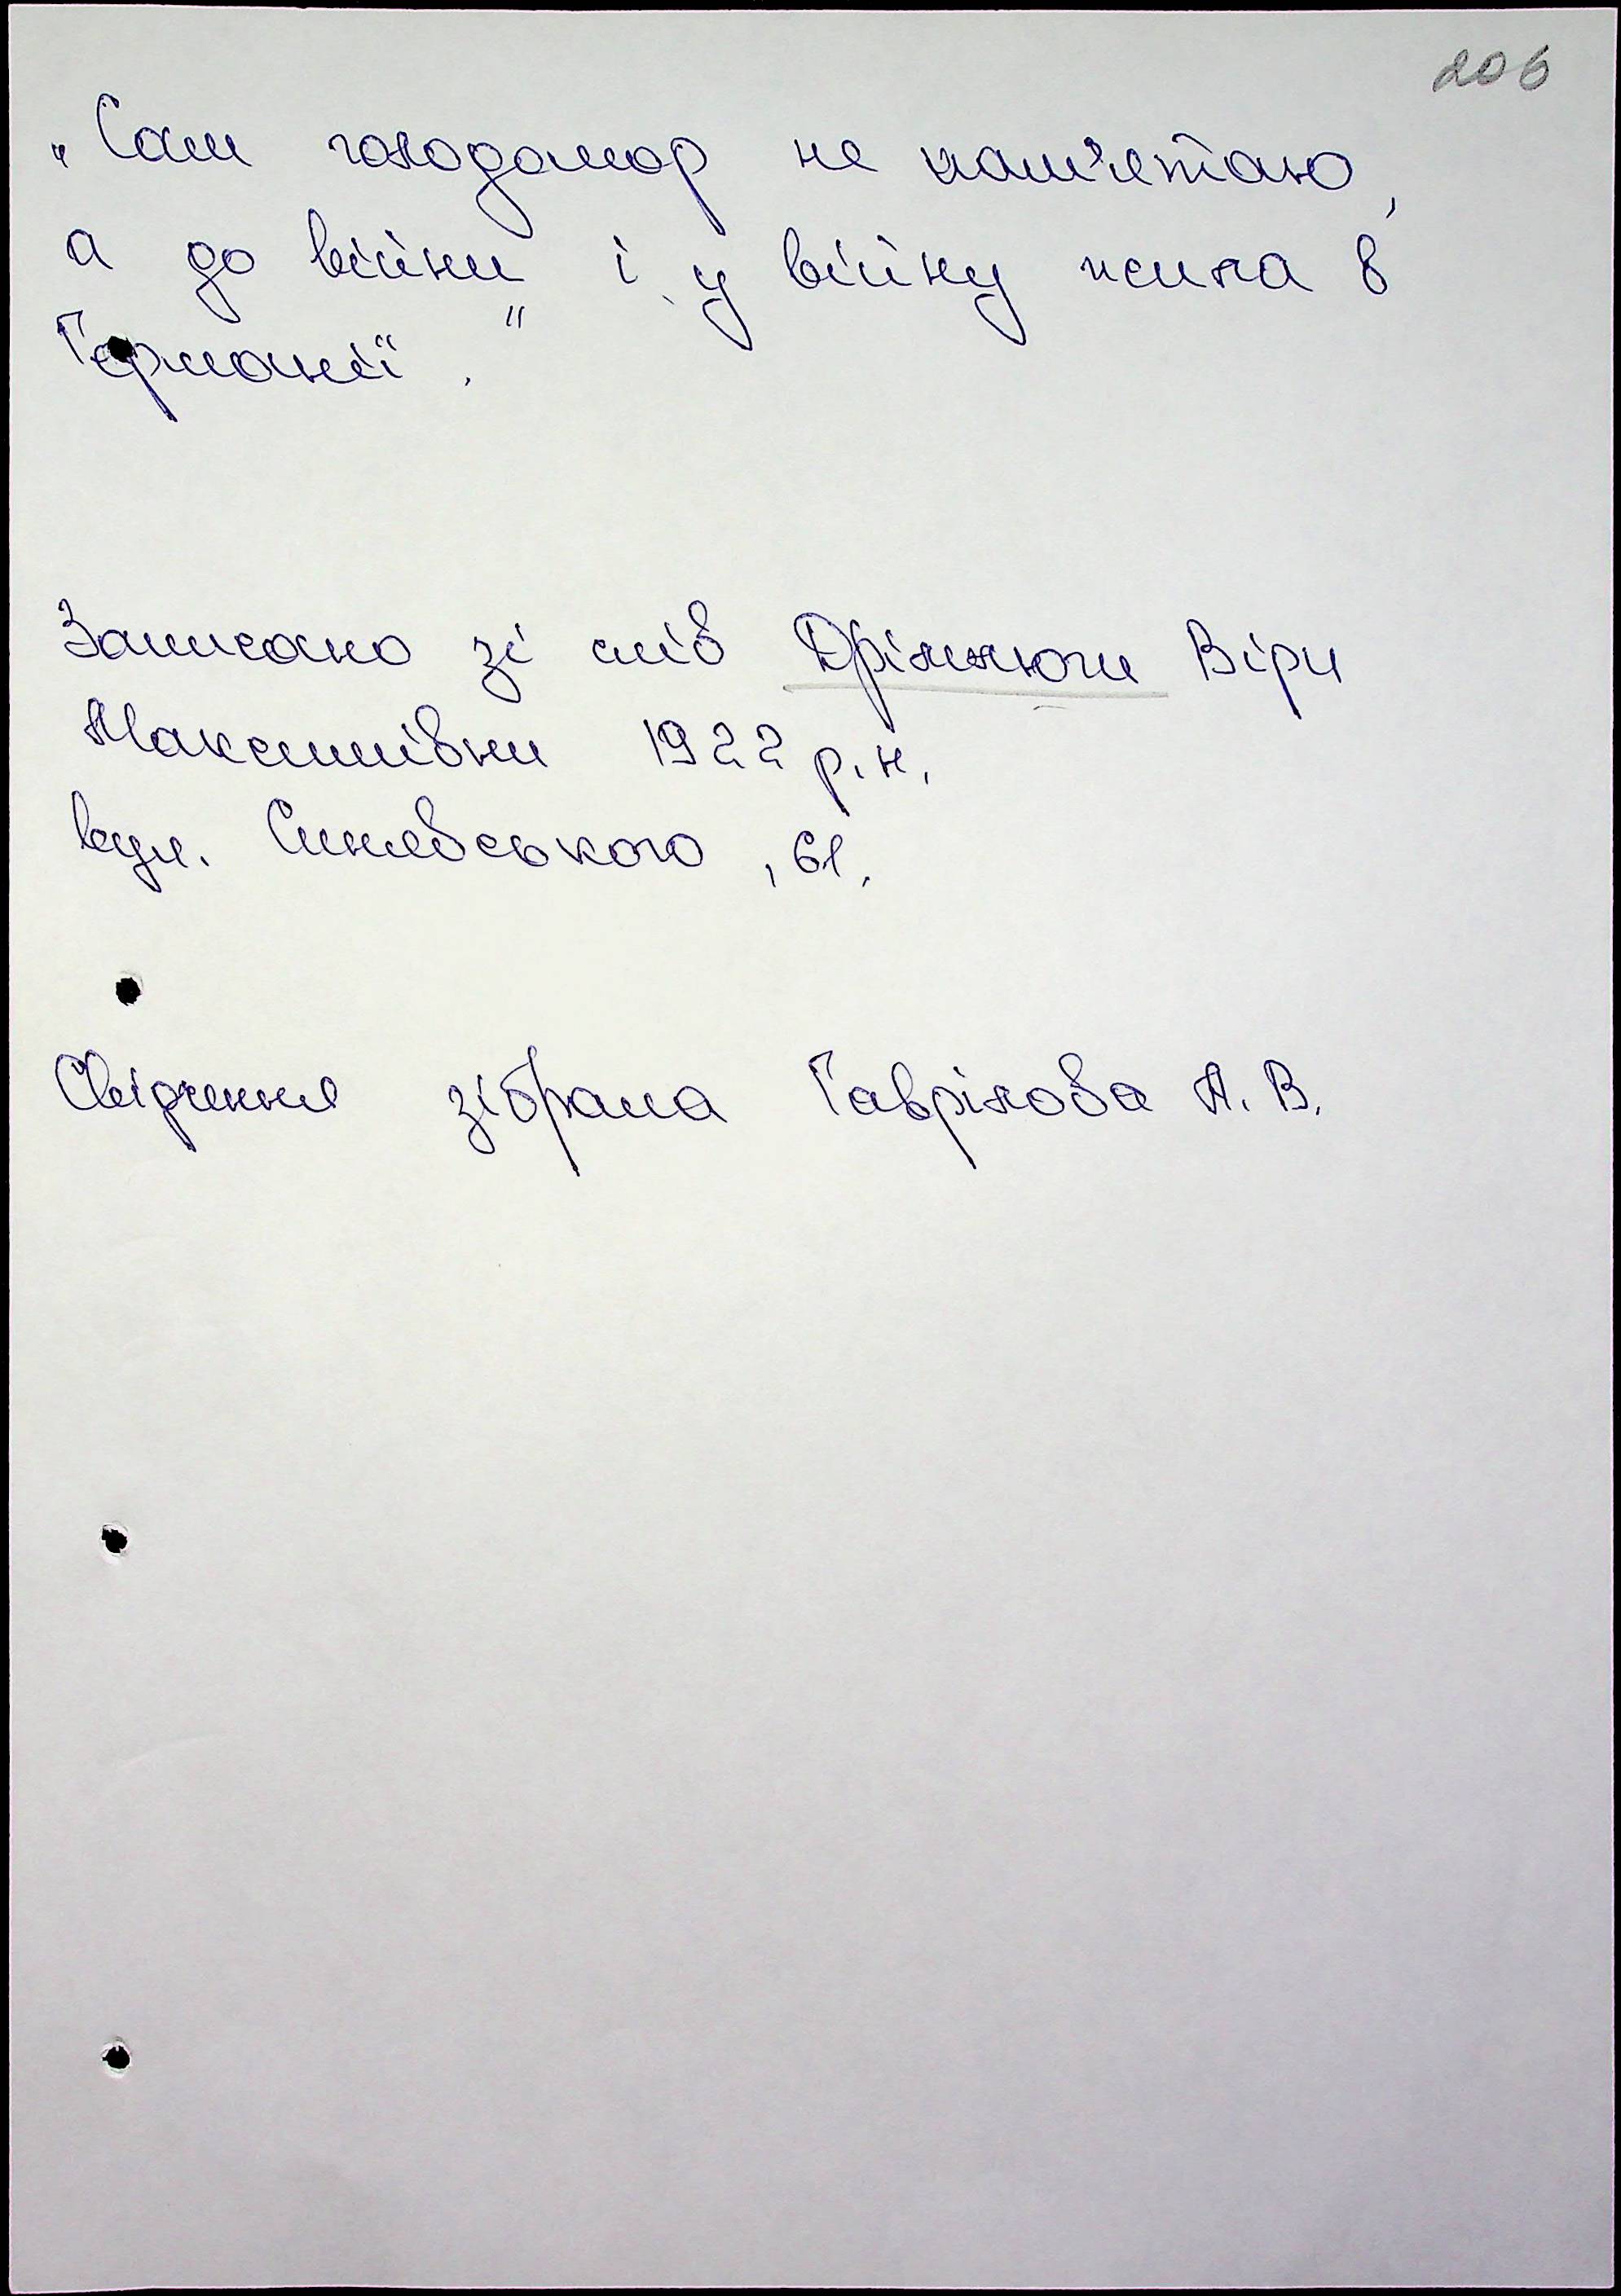 206
„Сам голодомор не пам'ятаю,
а до війни і у війну жила в
Германії."
Записано зі слів Дріжнюги Віри
Максимівни 1922 р.н.
вул. Синявського, 61.
Свідчення зібрала Гаврілова А. В.